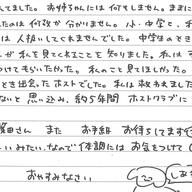 ました。お姉ちゃんには何もしません。まに
たのは何故か分かりません。小・中学と、
は人扱いしてくれませんでした。中学生のとき
んが私を見てくれることを知りました。私は
つけてもらいたかった。私のこと見てほしかった。
とき出会ったホストでした。私は救われました
ないと思い込み、約5年間ホストクラブに
さん また お手紙 お待ちしてます
いみたい。なので体調には お気をつけて
おやすみなさい